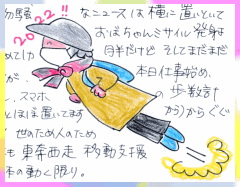 2022!!
物騒なニュースは横に置いといて
おばちゃんミサイル発射
毎年だけど そしてまだまだ
本日仕事始め、
の歩数計
が、スマホ
から)からぐぐ
とほぼ置いてます
世のため人のため
も東奔西走 移動支援
体の動く限り。